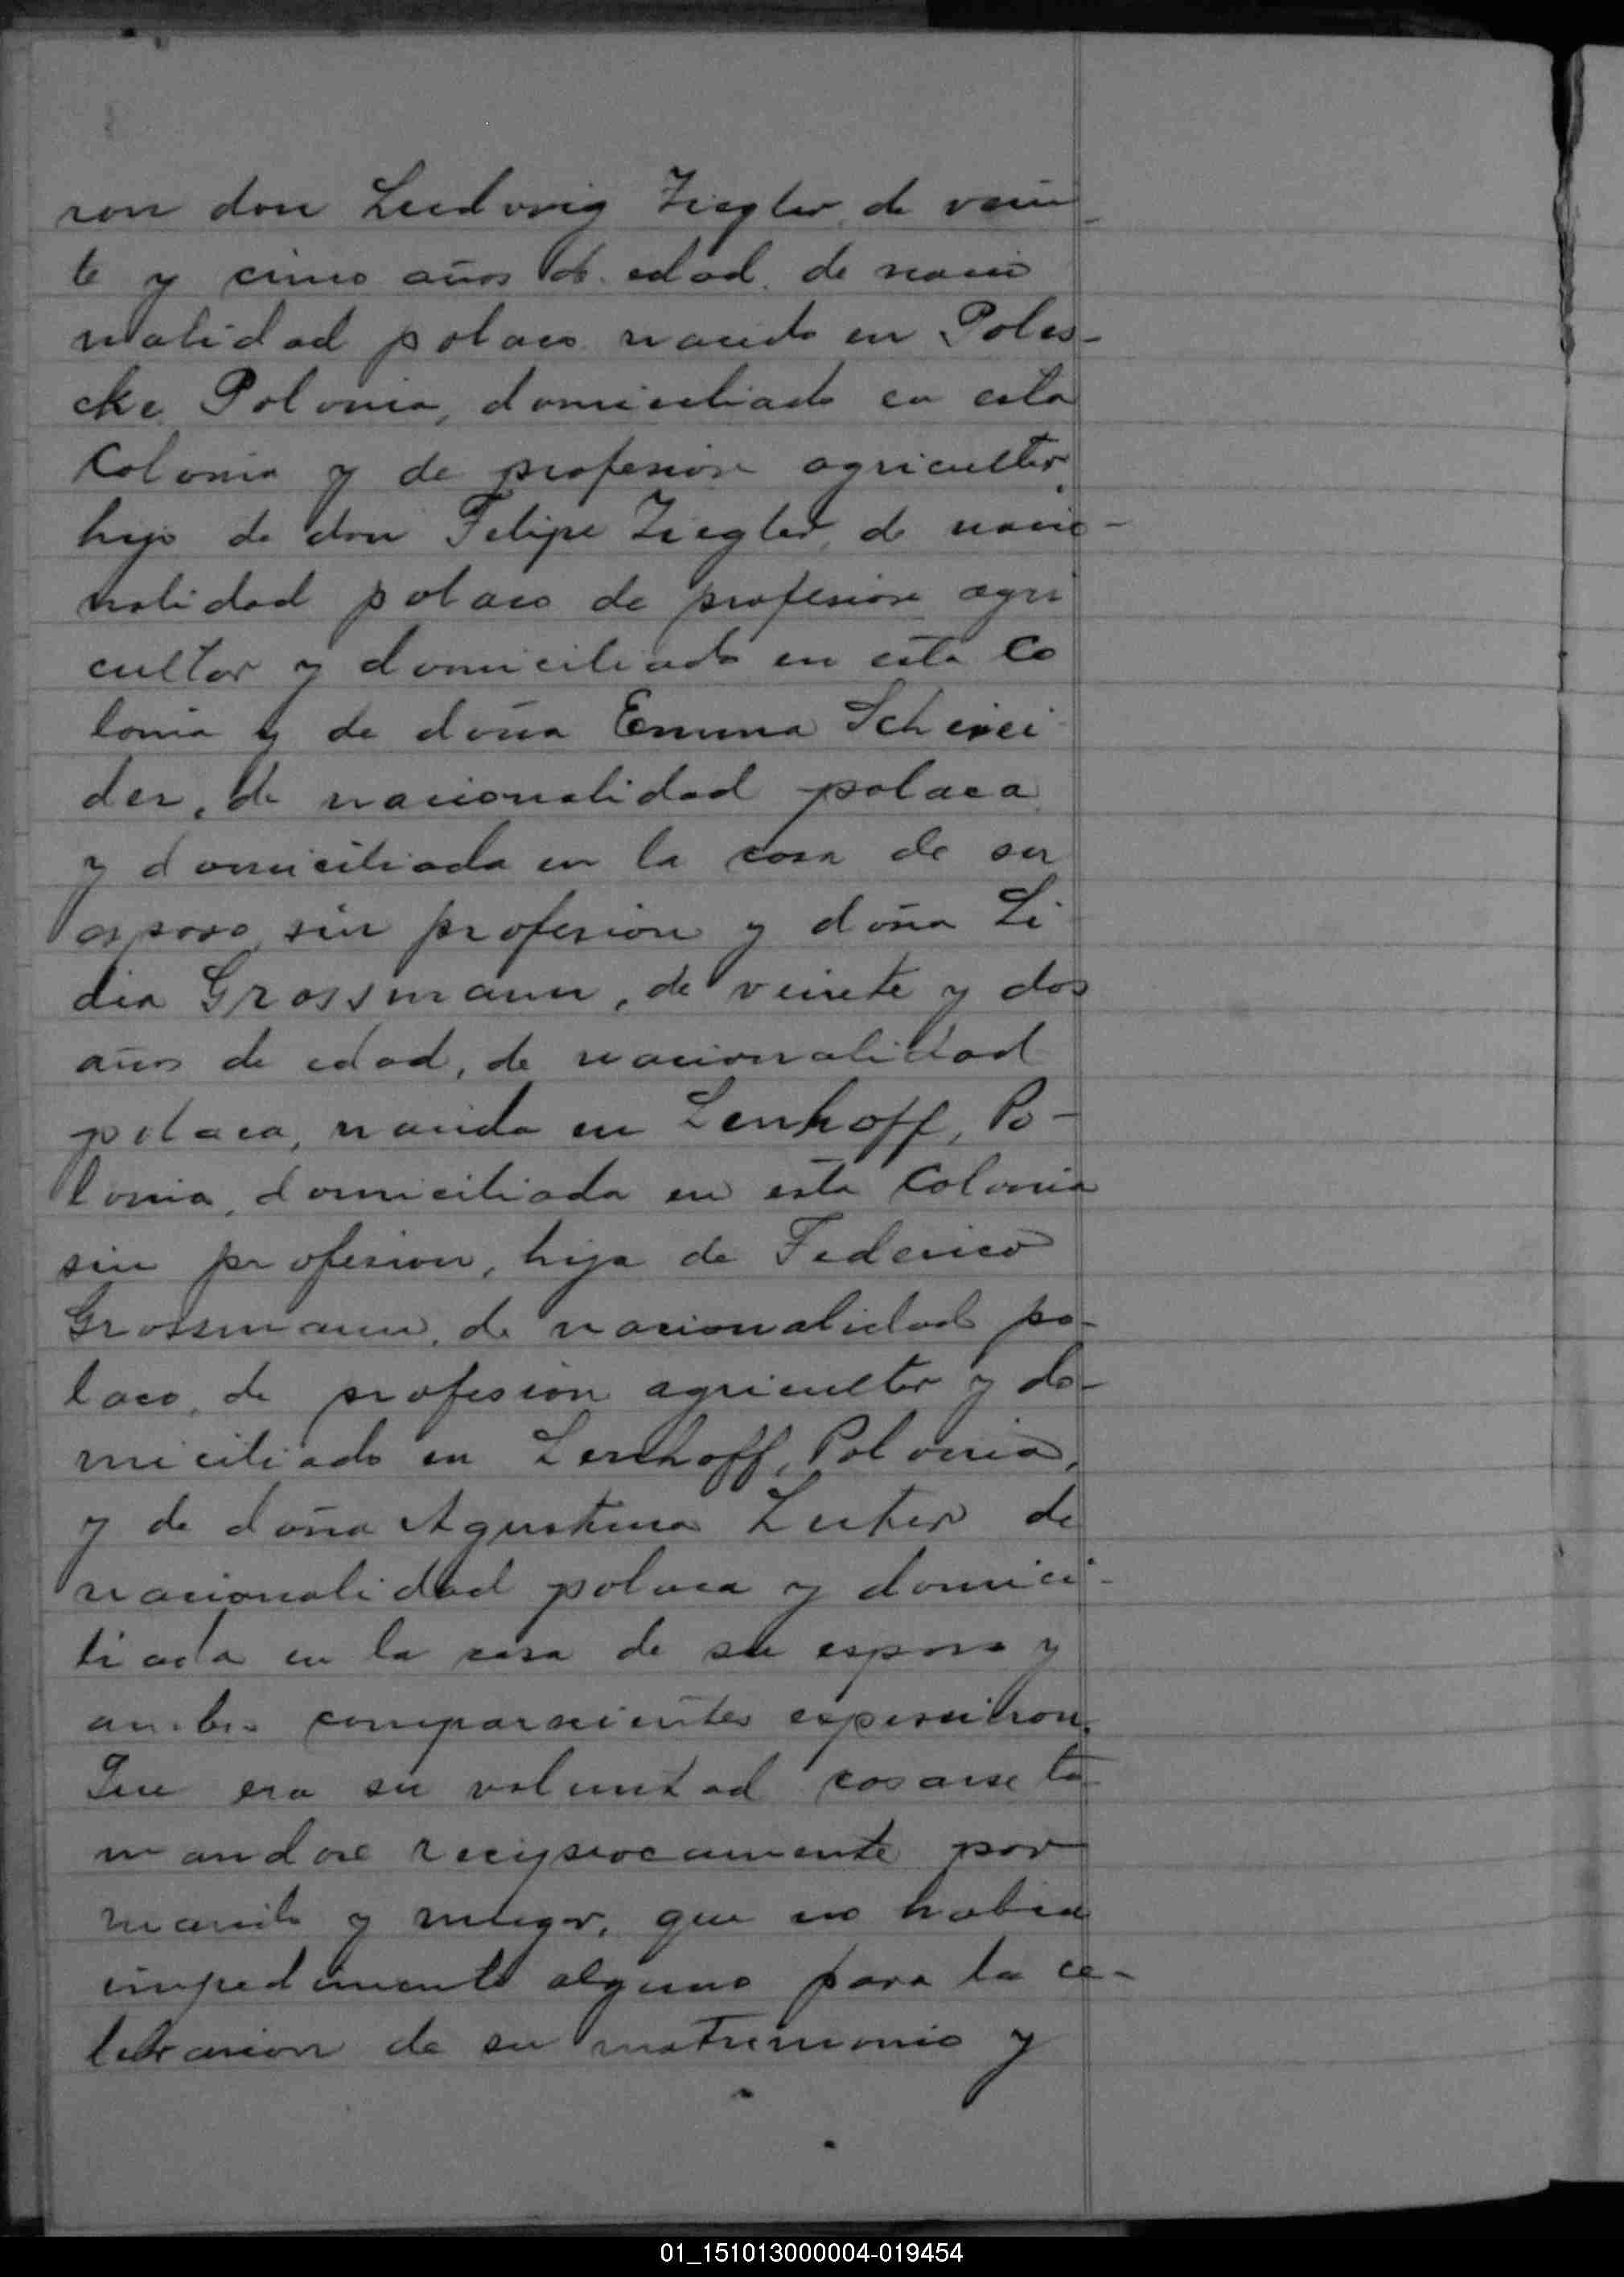 ron don Ludwig Ziegler, de vein
te y cinco años de edad, de nacio
nalidad polaco nacido en Poles-
cke Polonia, domiciliado en esta
Colonia y de profesion agricultor,
hijo de don Felipe Ziegler, de nacio-
nalidad polaco de profesion agri
cultor y domiciliado en esta Co
lonia y de doña Emma Schnei
der, de nacionalidad polaca
y domiciliada en la casa de su
esposo, sin profesion y doña Li-
dia Grossmann, de veinte y dos
años de edad, de nacionalidad
polaca, nacida en Lenhoff, Po-
lonia, domiciliada en esta Colonia
sin profesion, hija de Federico
Grossmann, de nacionalidad po-
laco, de profesion agricultor y do-
miciliado en Lenhoff, Polonia,
y de doña Agustina de
nacionalidad polaca y domici-
liada en la casa de su esposo y
ambos comparecientes expusieron.
Que era su voluntad casarse to-
mandose reciprocamente por
marido y muger, que no habia
impedimento alguno para la ce-
lebracion de su matrimonio y
01_151013000004-019454